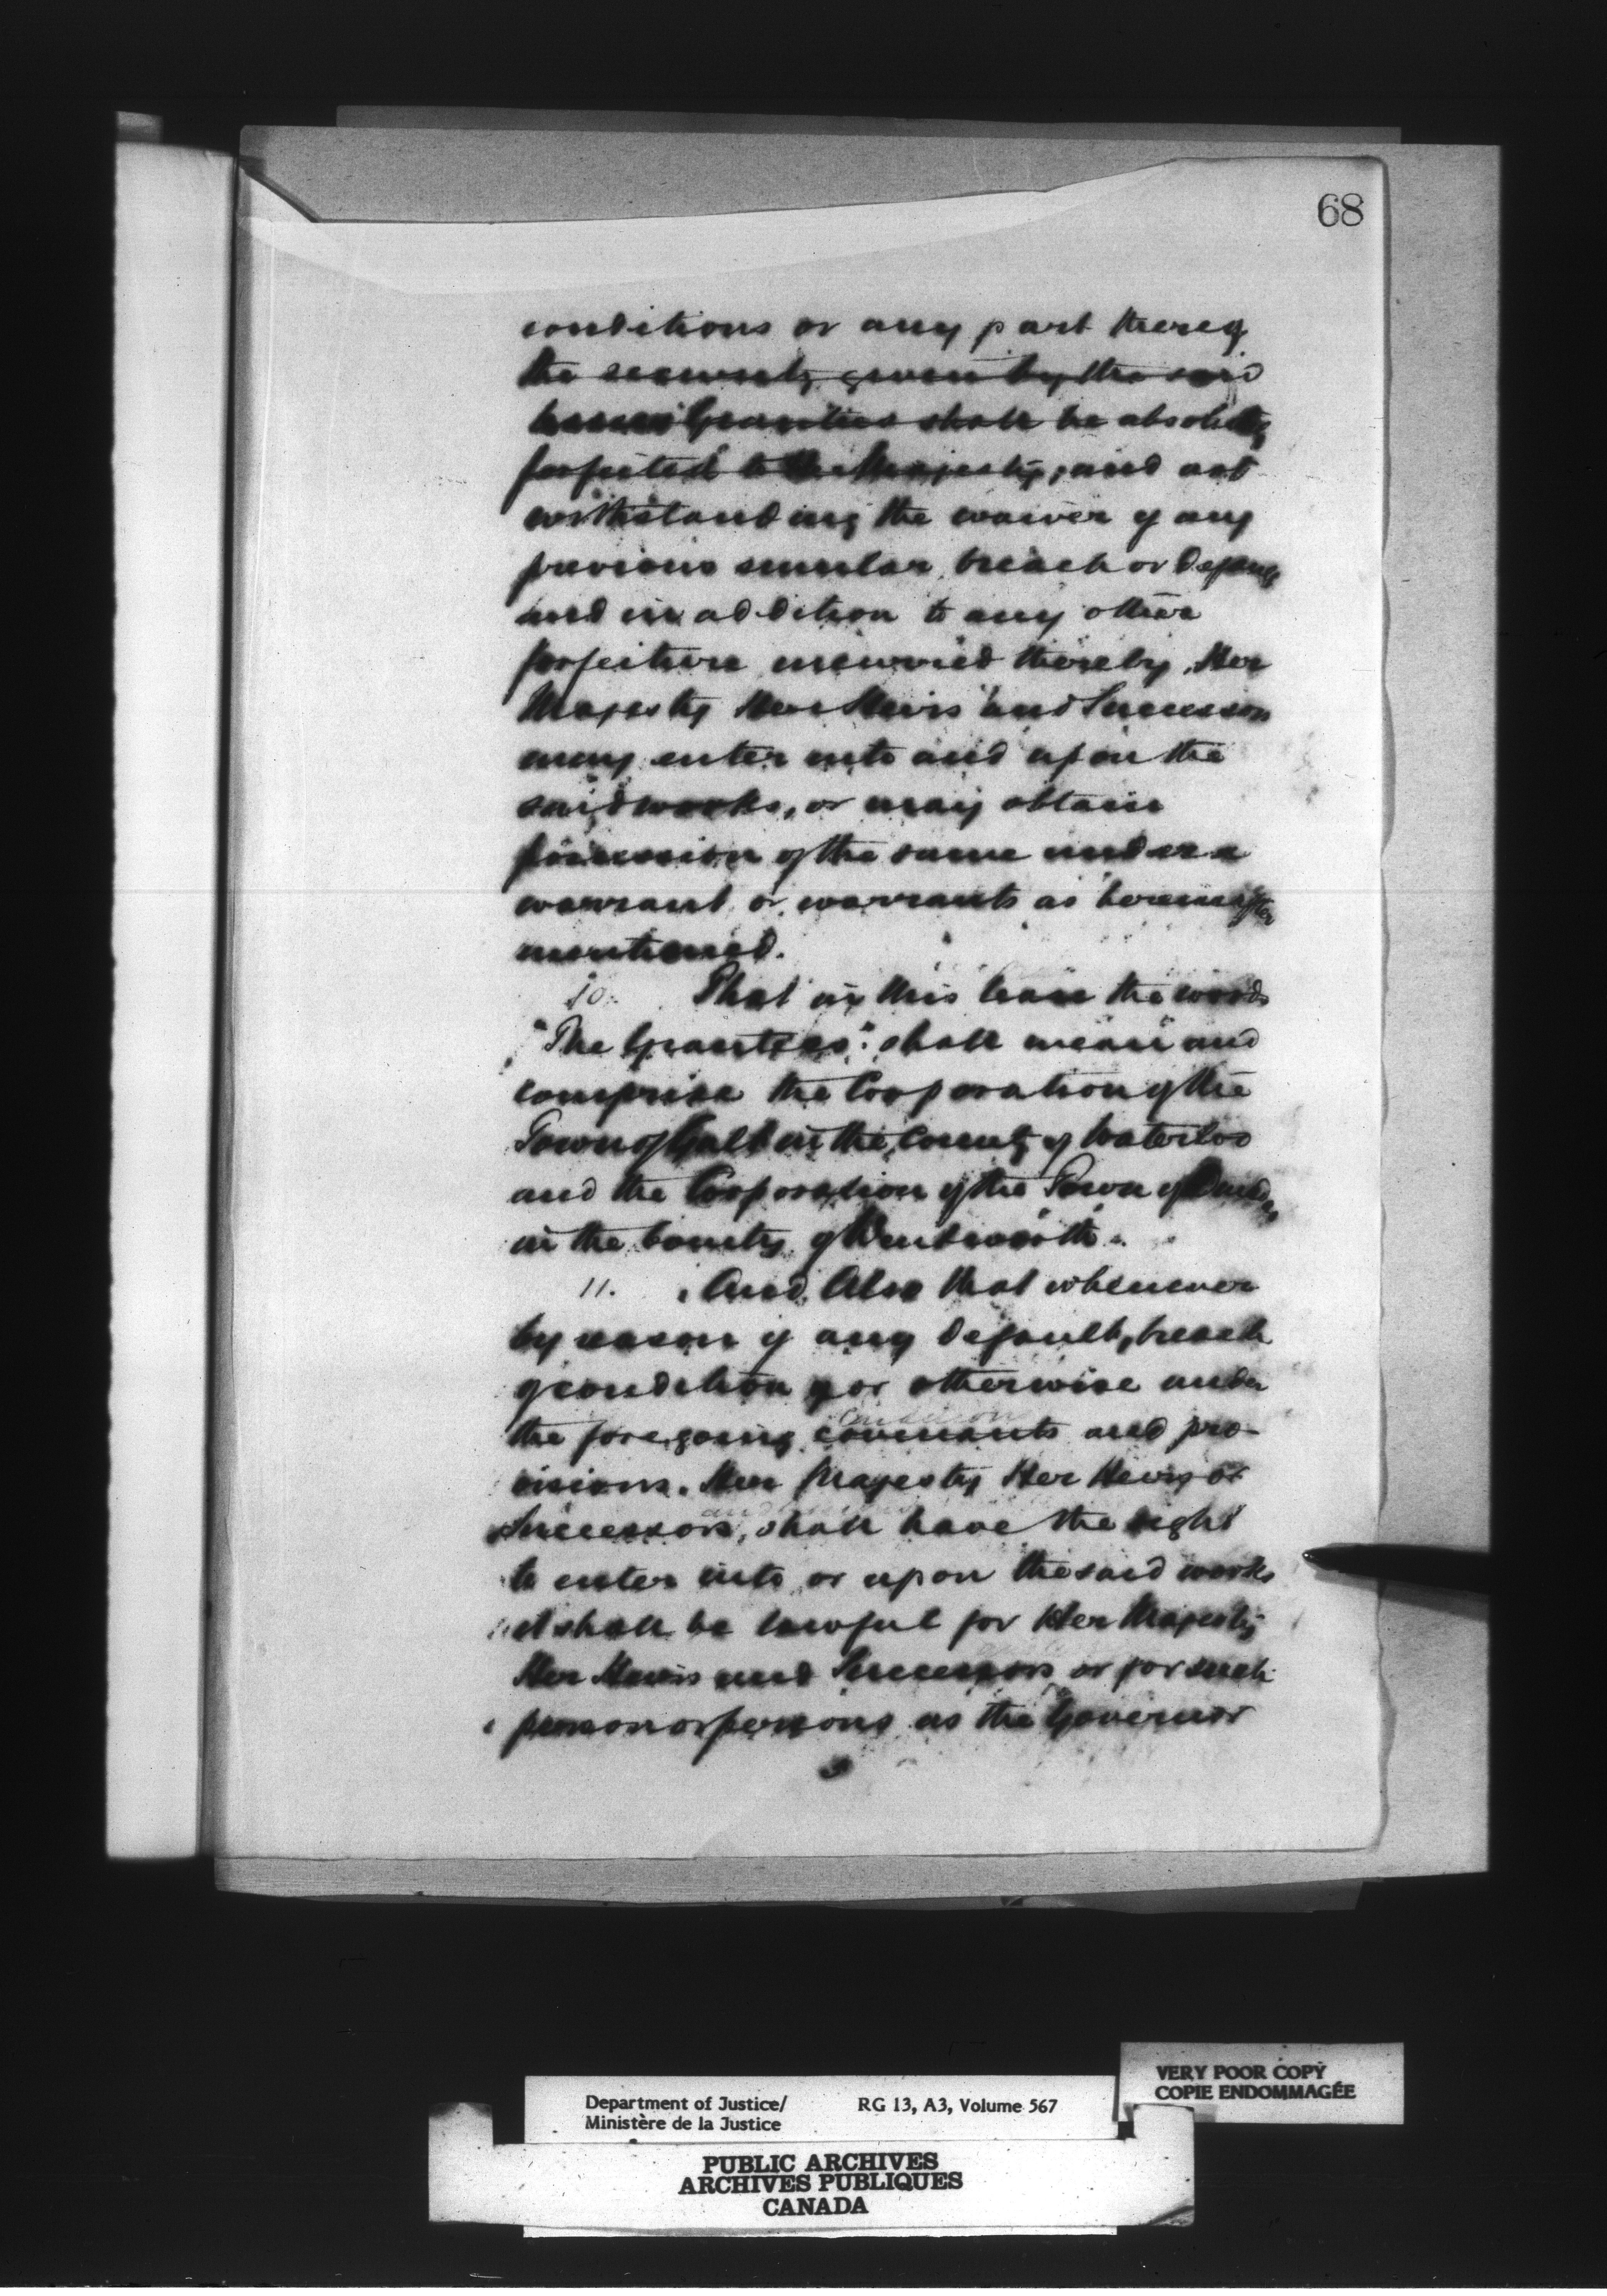 68
conditions or any part thereof
the security given by the said
Grantees shall be absolutely
forfeited to Her Majesty, and not
withstanding the waiver of any
previous similar breach or default
and in addition to any other
forfeiture incurred thereby, Her
Majesty Her Heirs and Successors
may enter into and upon the
said works, or may obtain
possession of the same under a
warrant or warrants as hereinafter
mentioned.
10. That in this lease the words
"The Grantees" shall mean and
comprise the Corporation of the
Town of Galt in the County of Waterloo
and the Corporation of the Town of Dundas
in the County of Wentworth.
11. And Also that whenever
by reason of any default, breach
of condition or otherwise under
condition
the foregoing covenants and pro-
visions. Her Majesty Her Heirs or
and
Successors, shall have the right
to enter into or upon the said works
it shall be lawful for Her Majesty
Her Heirs and Successors or for such
person or persons as the Governor
VERY POOR COPY
COPIE ENDOMMAGÉE
Department of Justice/ RG 13, A3, Volume 567
Ministère de la Justice
PUBLIC ARCHIVES
ARCHIVES PUBLIQUES
CANADA